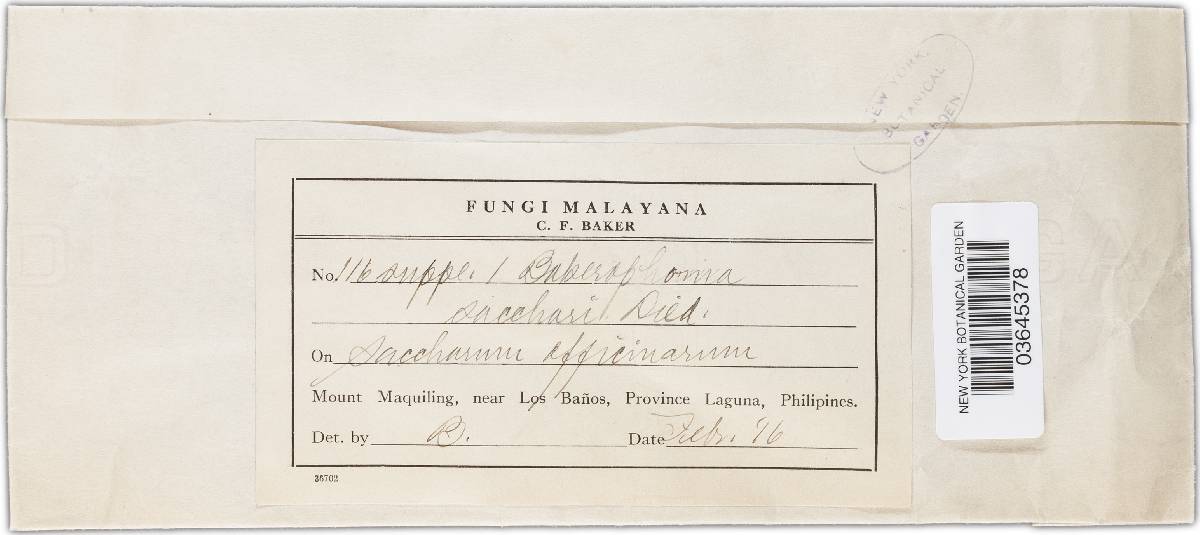 NEW YORK
BOTANICAL
GARDEN.
FUNGI MALAYANA
C. F. BAKER
No. 116 suppl. 1 Bakerophoma
Sacchari Died.
On Saccharum officinarum
Mount Maquiling, near Los Baños, Province Laguna, Philipines.
Det. by B. Date Febr. '16
36702
NEW YORK BOTANICAL GARDEN
03645378